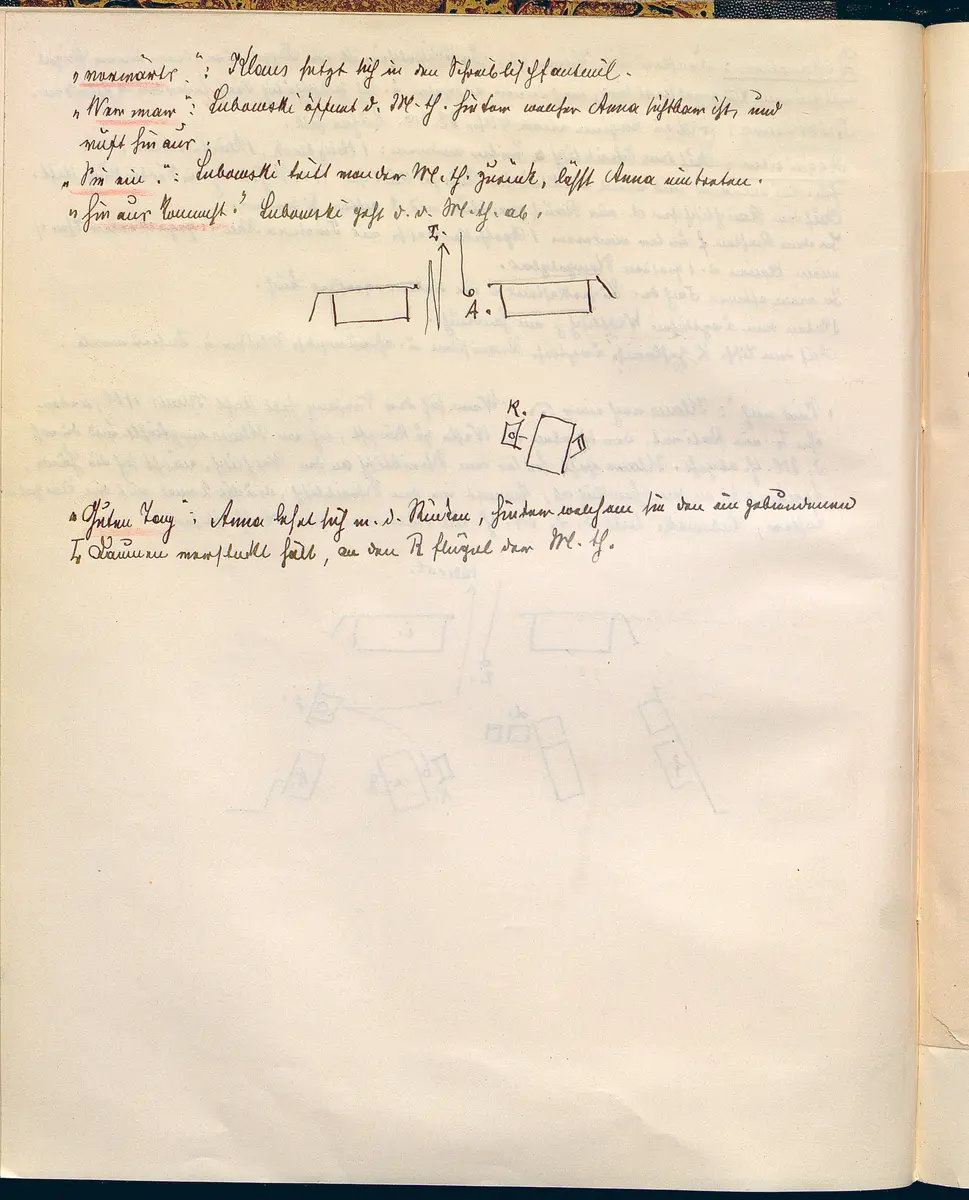 „vorwärts.“: Klaus setzt sich in den Schreibtischfauteuil.
„Wer war“: Lubowski öffnet d. M-th. hinter welcher Anna sichtbar ist, und
ruft hinaus.
„Sie ein.“: Lubowski tritt von der M.th. zurück, lässt Anna eintreten.
„hinaus kommst.“ Lubowski geht d. d. M-th. ab.
L.
A.
K.
„Guten Tag“: Anna lehnt sich m. d. Rücken, hinter welchem sie den eingebundenen
L Daumen versteckt hält, an den R flügel der M-th.